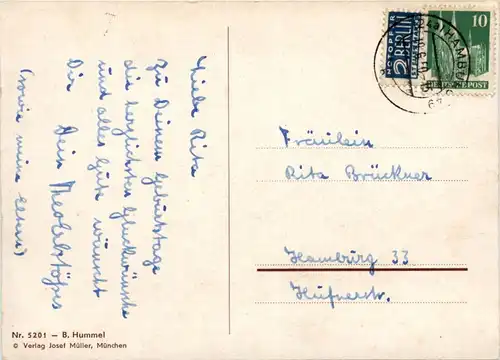 Liebe Rita
zu Deinem Geburtstage
die herzlichsten Glückwünsche
und alles Gute wünscht
Dir Dein
(sowie meine Eltern)
Fräulein
Rita Brückner
Hamburg 33
Hufnerstr.
Nr. 5201 — B. Hummel
© Verlag Josef Müller, München
NOTOPFER
2 BERLIN
STEUERMARKE
10
DEUTSCHE POST
HAMBURG